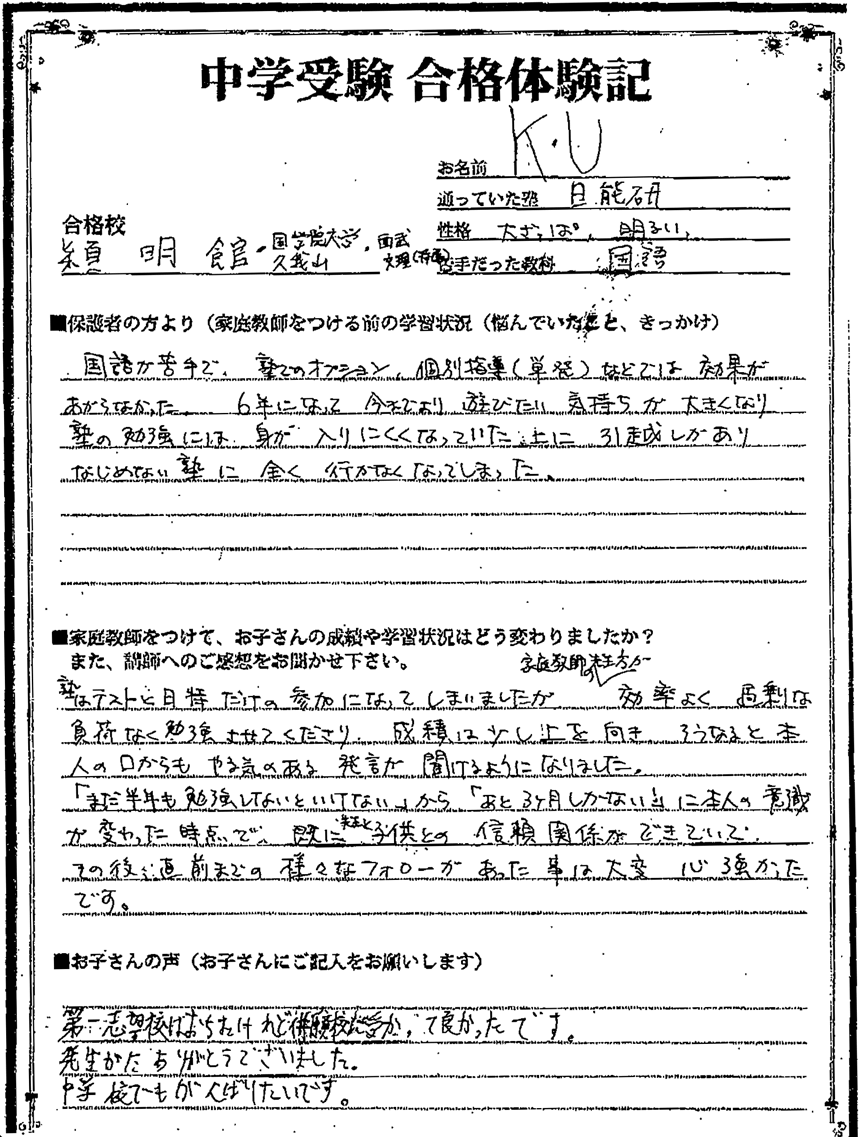 中学受験 合格体験記
お名前 K.U
通っていた塾 日能研
性格 大ざっぱ、明るい、
苦手だった教科 国語
合格校
穎明館・国学院大学久我山・西武文理(特選)
■保護者の方より(家庭教師をつける前の学習状況(悩んでいたこと、きっかけ)
国語が苦手で、塾でのオプション、個別指導(単発)などでは効果が
あがらなかった。 6年になって今までより遊びたい気持ちが大きくなり
塾の勉強には身が入りにくくなっていた上に引越しがあり
なじめない塾に全く行かなくなってしまった。
■家庭教師をつけて、お子さんの成績や学習状況はどう変わりましたか?
また、講師へのご感想をお聞かせ下さい。
家庭教師の先生方が
塾はテストと日特だけの参加になってしまいましたが 効率よく過剰な
負荷なく勉強させてくださり、成績は少し上を向き そうなると本
人の口からもやる気のある発言が聞けるようになりました。
「まだ半年も勉強しないといけない」から「あと3ヶ月しかない」に本人の意識
が変わった時点で、既に先生と子供との信頼関係ができていて、
その後、直前までの様々なフォローがあった事は大変心強かった
です。
■お子さんの声(お子さんにご記入をお願いします)
第一志望校はおちたけれど併願校が受かって良かったです。
先生がた ありがとうございました。
中学校でもがんばりたいです。